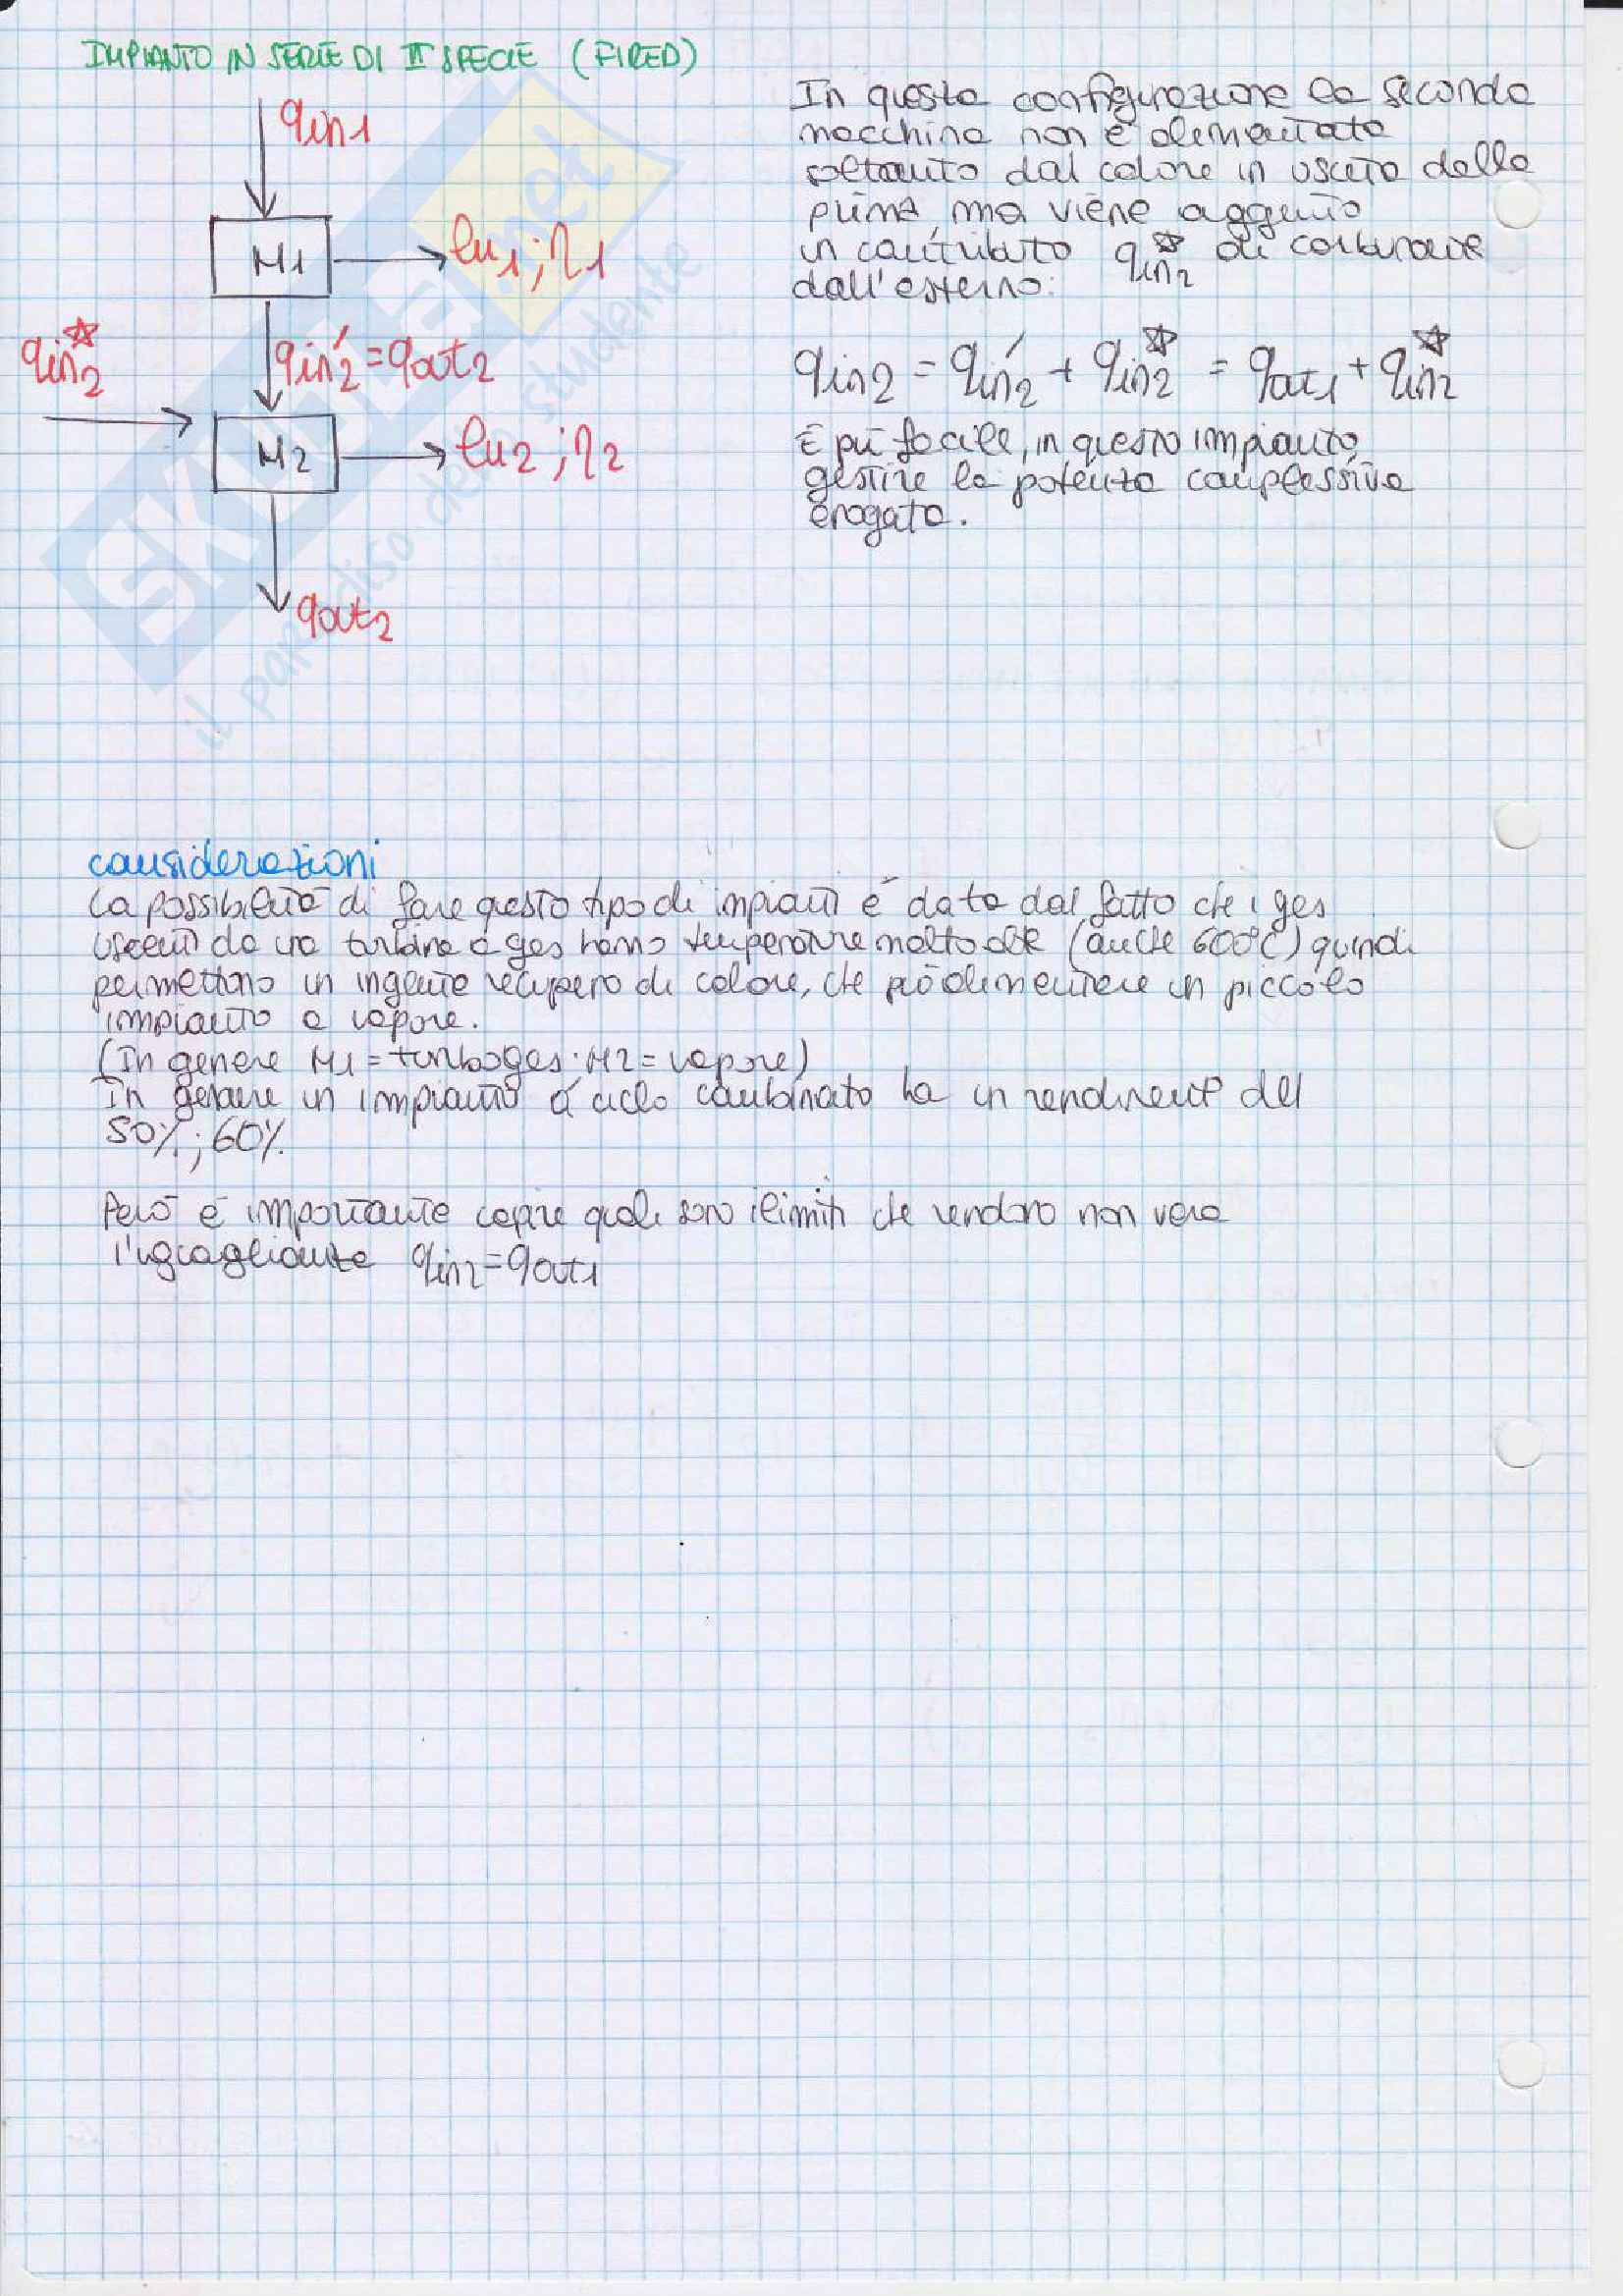 IMPIANTO IN SERIE DI II SPECIE (FIRED)
qin1
M1
lu1; η1
qin2☆
qin2' = qout2
M2
lu2; η2
qout2
In questa configurazione la seconda
macchina non è alimentata
soltanto dal calore in uscita della
prima, ma viene aggiunto
un contributo qin2☆ di
dall'esterno:
qin2 = qin2' + qin2☆ = qout1 + qin2☆
È più facile, in questo impianto,
gestire la potenza complessiva
erogata.
considerazioni
La possibilità di fare questo tipo di impianti è data dal fatto che i gas
uscenti da una turbina a gas hanno temperature molto alte (anche 600°C) quindi
permettono un ingente recupero di calore, che può alimentare un piccolo
impianto a vapore.
(In genere M1 = turbogas; M2 = vapore)
In genere un impianto a ciclo combinato ha un rendimento del
50%; 60%.
Però è importante capire quali sono i limiti che rendono non vera
l'uguaglianza qin2 = qout1
SKUOLA.net
il paradiso dello studente